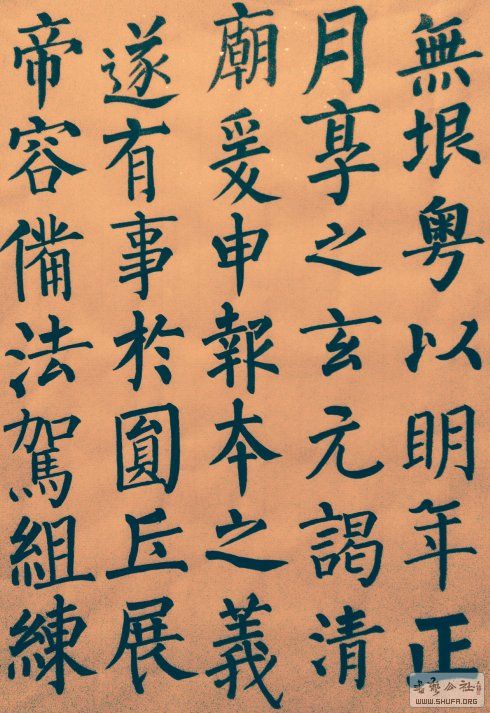 無垠粵以明年正
月享之玄元謁清
廟爰申報本之義
遂有事於圓丘展
帝容備法駕組練
书艺公社
WWW.SHUFA.ORG